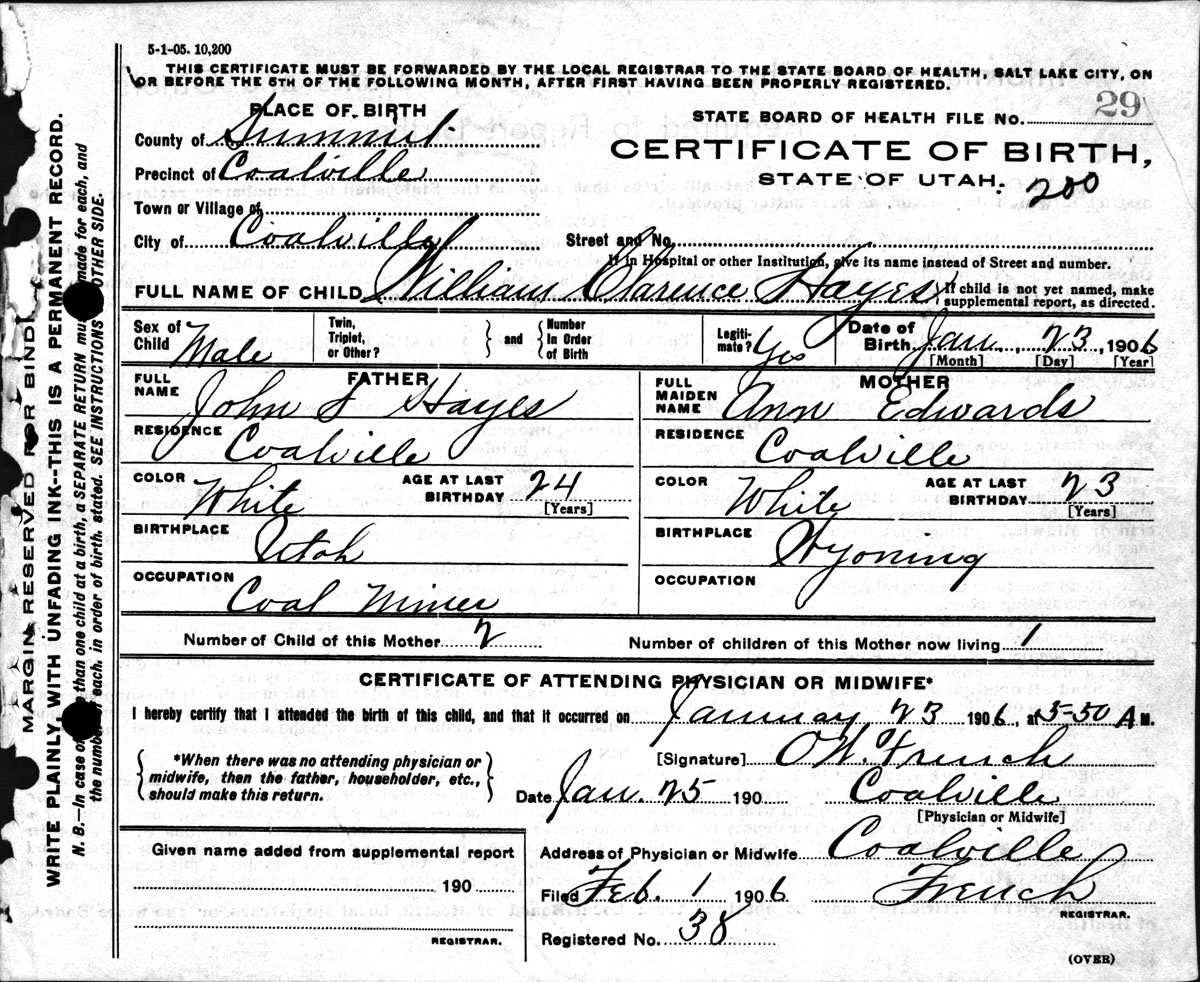 5-1-05. 10,200
THIS CERTIFICATE MUST BE FORWARDED BY THE LOCAL REGISTRAR TO THE STATE BOARD OF HEALTH, SALT LAKE CITY, ON
OR BEFORE THE 5TH OF THE FOLLOWING MONTH, AFTER FIRST HAVING BEEN PROPERLY REGISTERED.
PLACE OF BIRTH
County of Summit
Precinct of Coalville
Town or Village of
City of Coalville
STATE BOARD OF HEALTH FILE No. 29
CERTIFICATE OF BIRTH,
STATE OF UTAH. 200
Street and No.
If in Hospital or other Institution, give its name instead of Street and number.
FULL NAME OF CHILD William Clarence Hayes
If child is not yet named, make
supplemental report, as directed.
Sex of Child Male
Twin, Triplet, or Other?
and
Number in Order of Birth
Legiti-mate? Yes
Date of Birth Jan. 23, 1906
[Month] [Day] [Year]
FATHER
FULL NAME John F Hayes
RESIDENCE Coalville
COLOR White
AGE AT LAST BIRTHDAY 24
[Years]
BIRTHPLACE Utah
OCCUPATION Coal Miner
MOTHER
FULL MAIDEN NAME Ann Edwards
RESIDENCE Coalville
COLOR White
AGE AT LAST BIRTHDAY 23
[Years]
BIRTHPLACE Wyoming
OCCUPATION
Number of Child of this Mother 2
Number of children of this Mother now living 1
CERTIFICATE OF ATTENDING PHYSICIAN OR MIDWIFE*
I hereby certify that I attended the birth of this child, and that it occurred on January 23 1906, at 5-50 A M.
*When there was no attending physician or
midwife, then the father, householder, etc.,
should make this return.
[Signature] O W. French
Date Jan. 25 190 Coalville
[Physician or Midwife]
Address of Physician or Midwife Coalville
Given name added from supplemental report
190
REGISTRAR.
Filed Feb. 1 1906 French
REGISTRAR.
Registered No. 38
(OVER)
MARGIN RESERVED FOR BINDI
WRITE PLAINLY, WITH UNFADING INK--THIS IS A PERMANENT RECORD.
N. B.—In case of than one child at a birth, a SEPARATE RETURN mu made for each, and
the number each, in order of birth, stated. SEE INSTRUCTIONS OTHER SIDE.